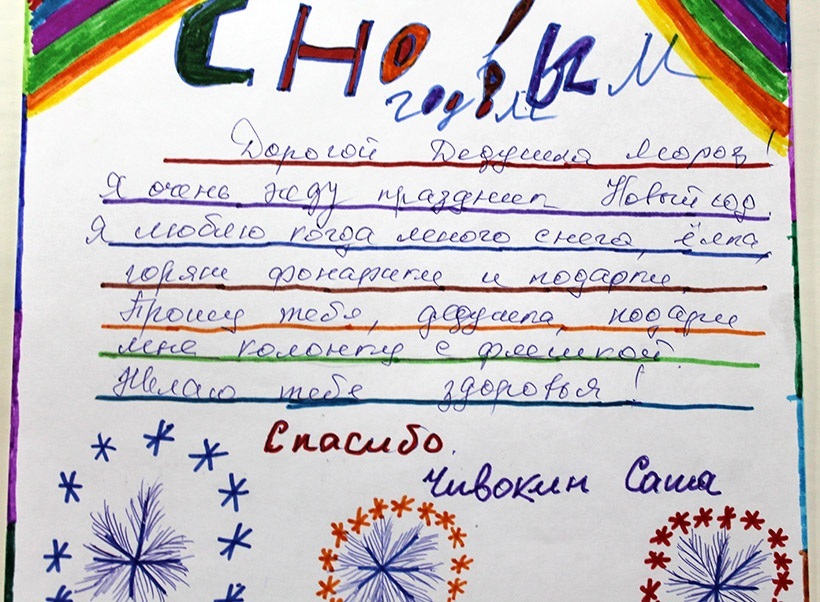 С НОВЫМ
годом!
Дорогой Дедушка Мороз!
Я очень жду праздник Новый год.
Я люблю когда много снега, ёлка,
горят фонарики и подарки.
Прошу тебя, дедушка, подари
мне колонку с флешкой.
Желаю тебе здоровья!
Спасибо.
Чивокин Саша